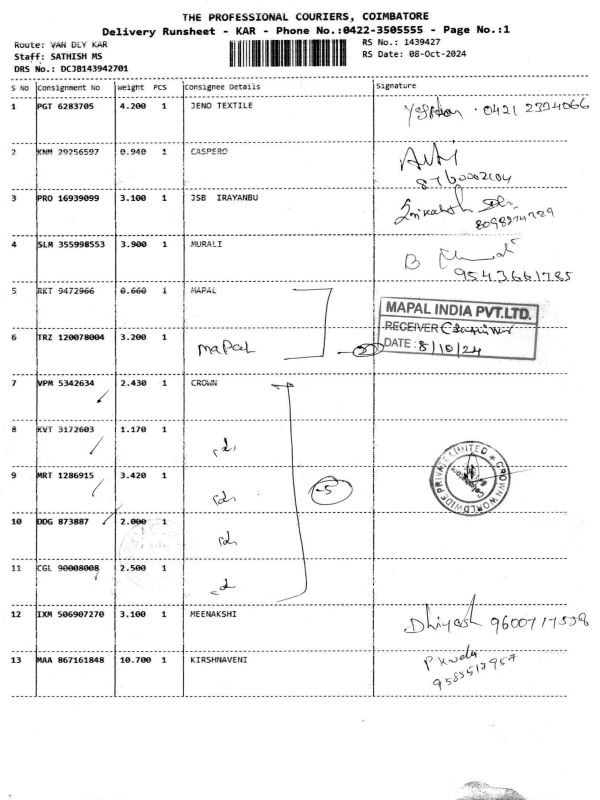 THE PROFESSIONAL COURIERS, COIMBATORE
Delivery Runsheet - KAR - Phone No.:0422-3505555 - Page No.:1
Route: VAN DLY KAR
Staff: SATHISH MS
DRS No.: DCJB143942701
RS No.: 1439427
RS Date: 08-Oct-2024
S No Consignment No Weight PCS Consignee Details Signature
1 PGT 6283705 4.200 1 JENO TEXTILE
0421 2334066
2 KNM 29256597 0.940 1 CASPERO
8760002104
3 PRO 16939099 3.100 1 JSB IRAYANBU
4 SLM 355998553 3.900 1 MURALI
B
9543661785
5 RKT 9472966 0.660 1 MAPAL
MAPAL INDIA PVT.LTD.
RECEIVER
DATE : 8/10/24
6 TRZ 120078004 3.200 1 MAPAL
7 VPM 5342634 2.430 1 CROWN
8 KVT 3172603 1.170 1
9 MRT 1286915 3.420 1
5
CROWN WORLDWIDE PRIVATE LIMITED
10 DDG 873887 2.000 1
11 CGL 90008008 2.500 1
12 IXM 506907270 3.100 1 MEENAKSHI
Dhiyash
13 MAA 867161848 10.700 1 KIRSHNAVENI
9585517957